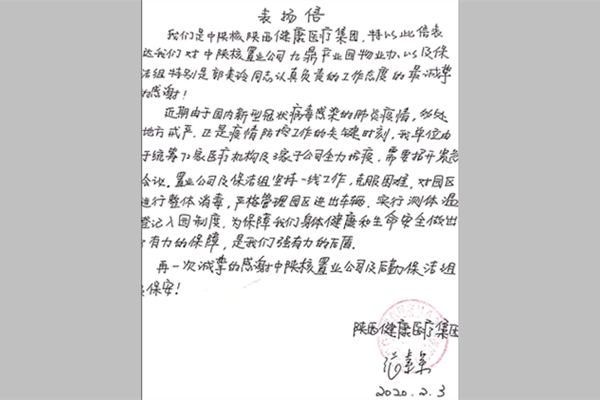 表扬信
我们是中陕核陕西健康医疗集团,特以此信表
达我们对中陕核置业公司九鼎产业园物业办,以及保
洁组特别是郭 同志认真负责的工作态度的最诚挚
的感谢!
近期由于国内新型冠状病毒感染的肺炎疫情,
地方戒严,正是疫情防控工作的关键时刻,我单位由
于统筹 家医疗机构及3家子公司全力抗疫,需要召开紧急
会议。置业公司及保洁组坚持一线工作,克服困难,对园区
进行整体消毒,严格管理园区进出车辆,实行测体温
登记入园制度,为保障我们身体健康和生命安全做出
了有力的保障,是我们强有力的后盾。
再一次诚挚的感谢中陕核置业公司及后勤保洁组
保安!
陕西健康医疗集团
2020.2.3